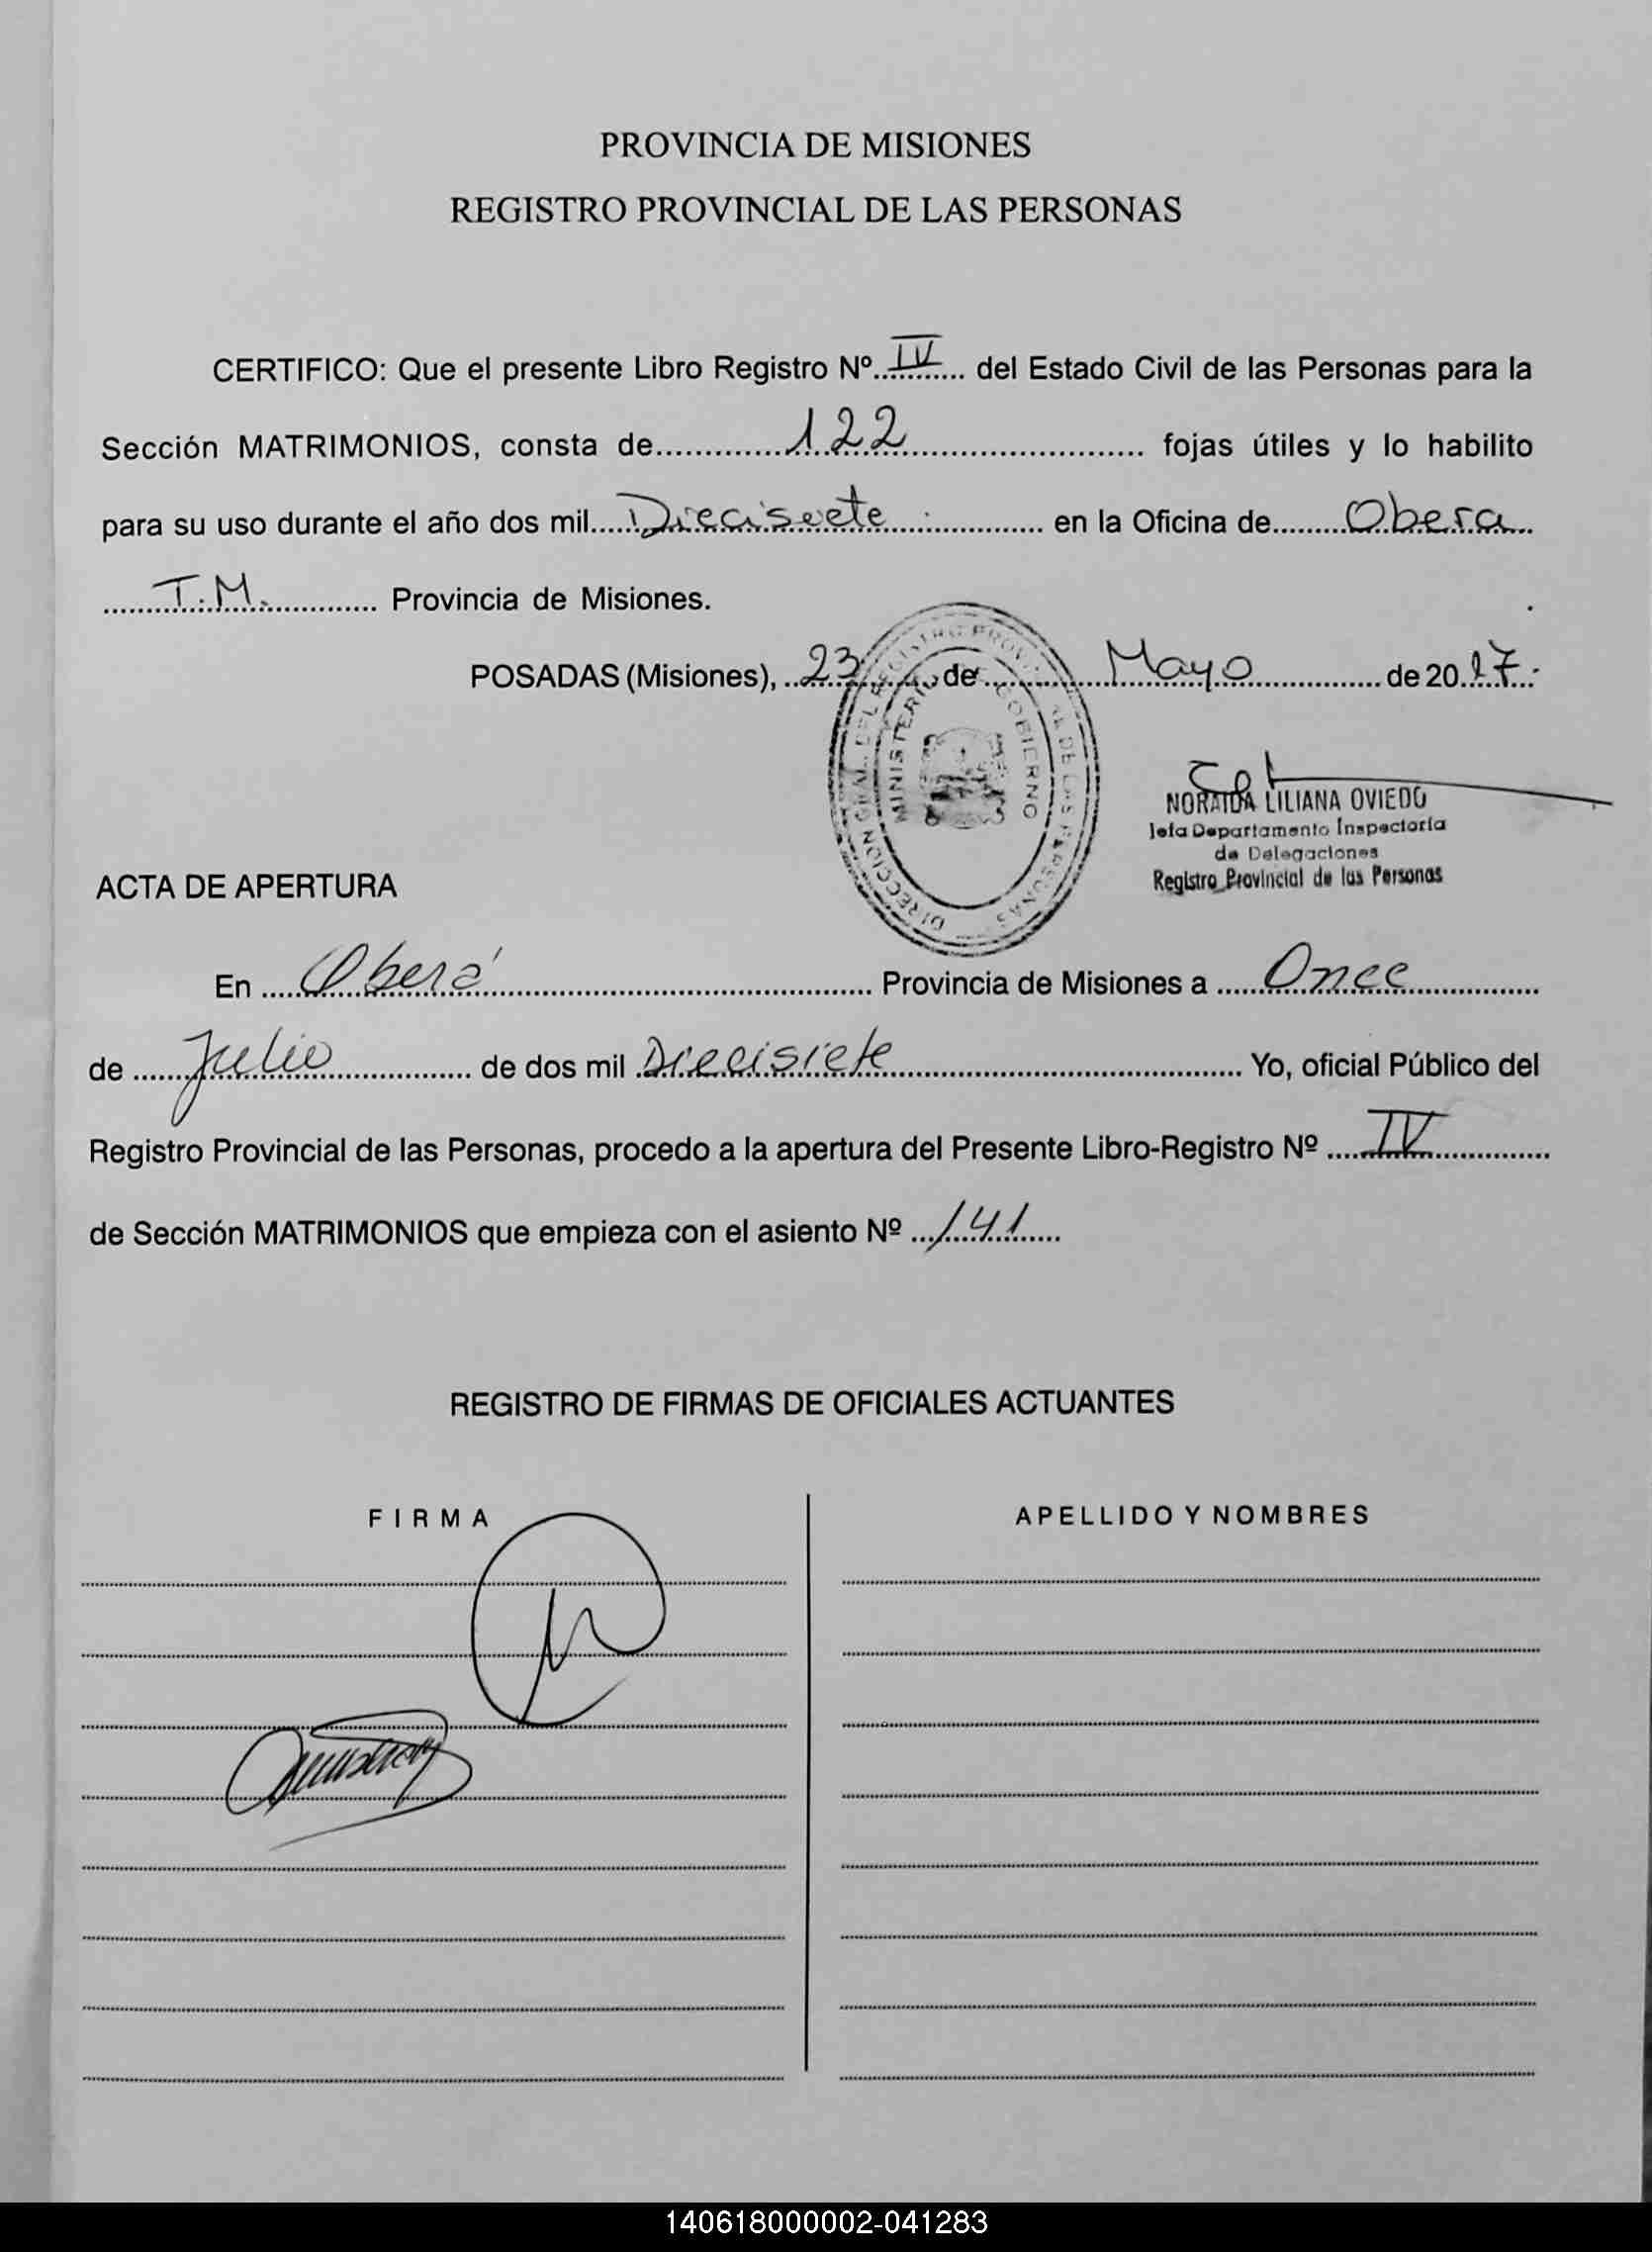 PROVINCIA DE MISIONES
REGISTRO PROVINCIAL DE LAS PERSONAS
CERTIFICO: Que el presente Libro Registro Nº. IV del Estado Civil de las Personas para la
Sección MATRIMONIOS, consta de 122 fojas útiles y lo habilito
para su uso durante el año dos mil Diecisiete en la Oficina de Obera
T.M. Provincia de Misiones.
POSADAS (Misiones), 23 de Mayo de 2017.
DIRECCION GRAL. DEL REGISTRO PROVINCIAL DE LAS PERSONAS
MINISTERIO DE GOBIERNO
NORAIDA LILIANA OVIEDO
Jefa Departamento Inspectoria
de Delegaciones
Registro Provincial de las Personas
ACTA DE APERTURA
En Oberá Provincia de Misiones a Once
de Julio de dos mil Diecisiete Yo, oficial Público del
Registro Provincial de las Personas, procedo a la apertura del Presente Libro-Registro Nº IV
de Sección MATRIMONIOS que empieza con el asiento Nº 141
REGISTRO DE FIRMAS DE OFICIALES ACTUANTES
FIRMA
APELLIDO Y NOMBRES
140618000002-041283